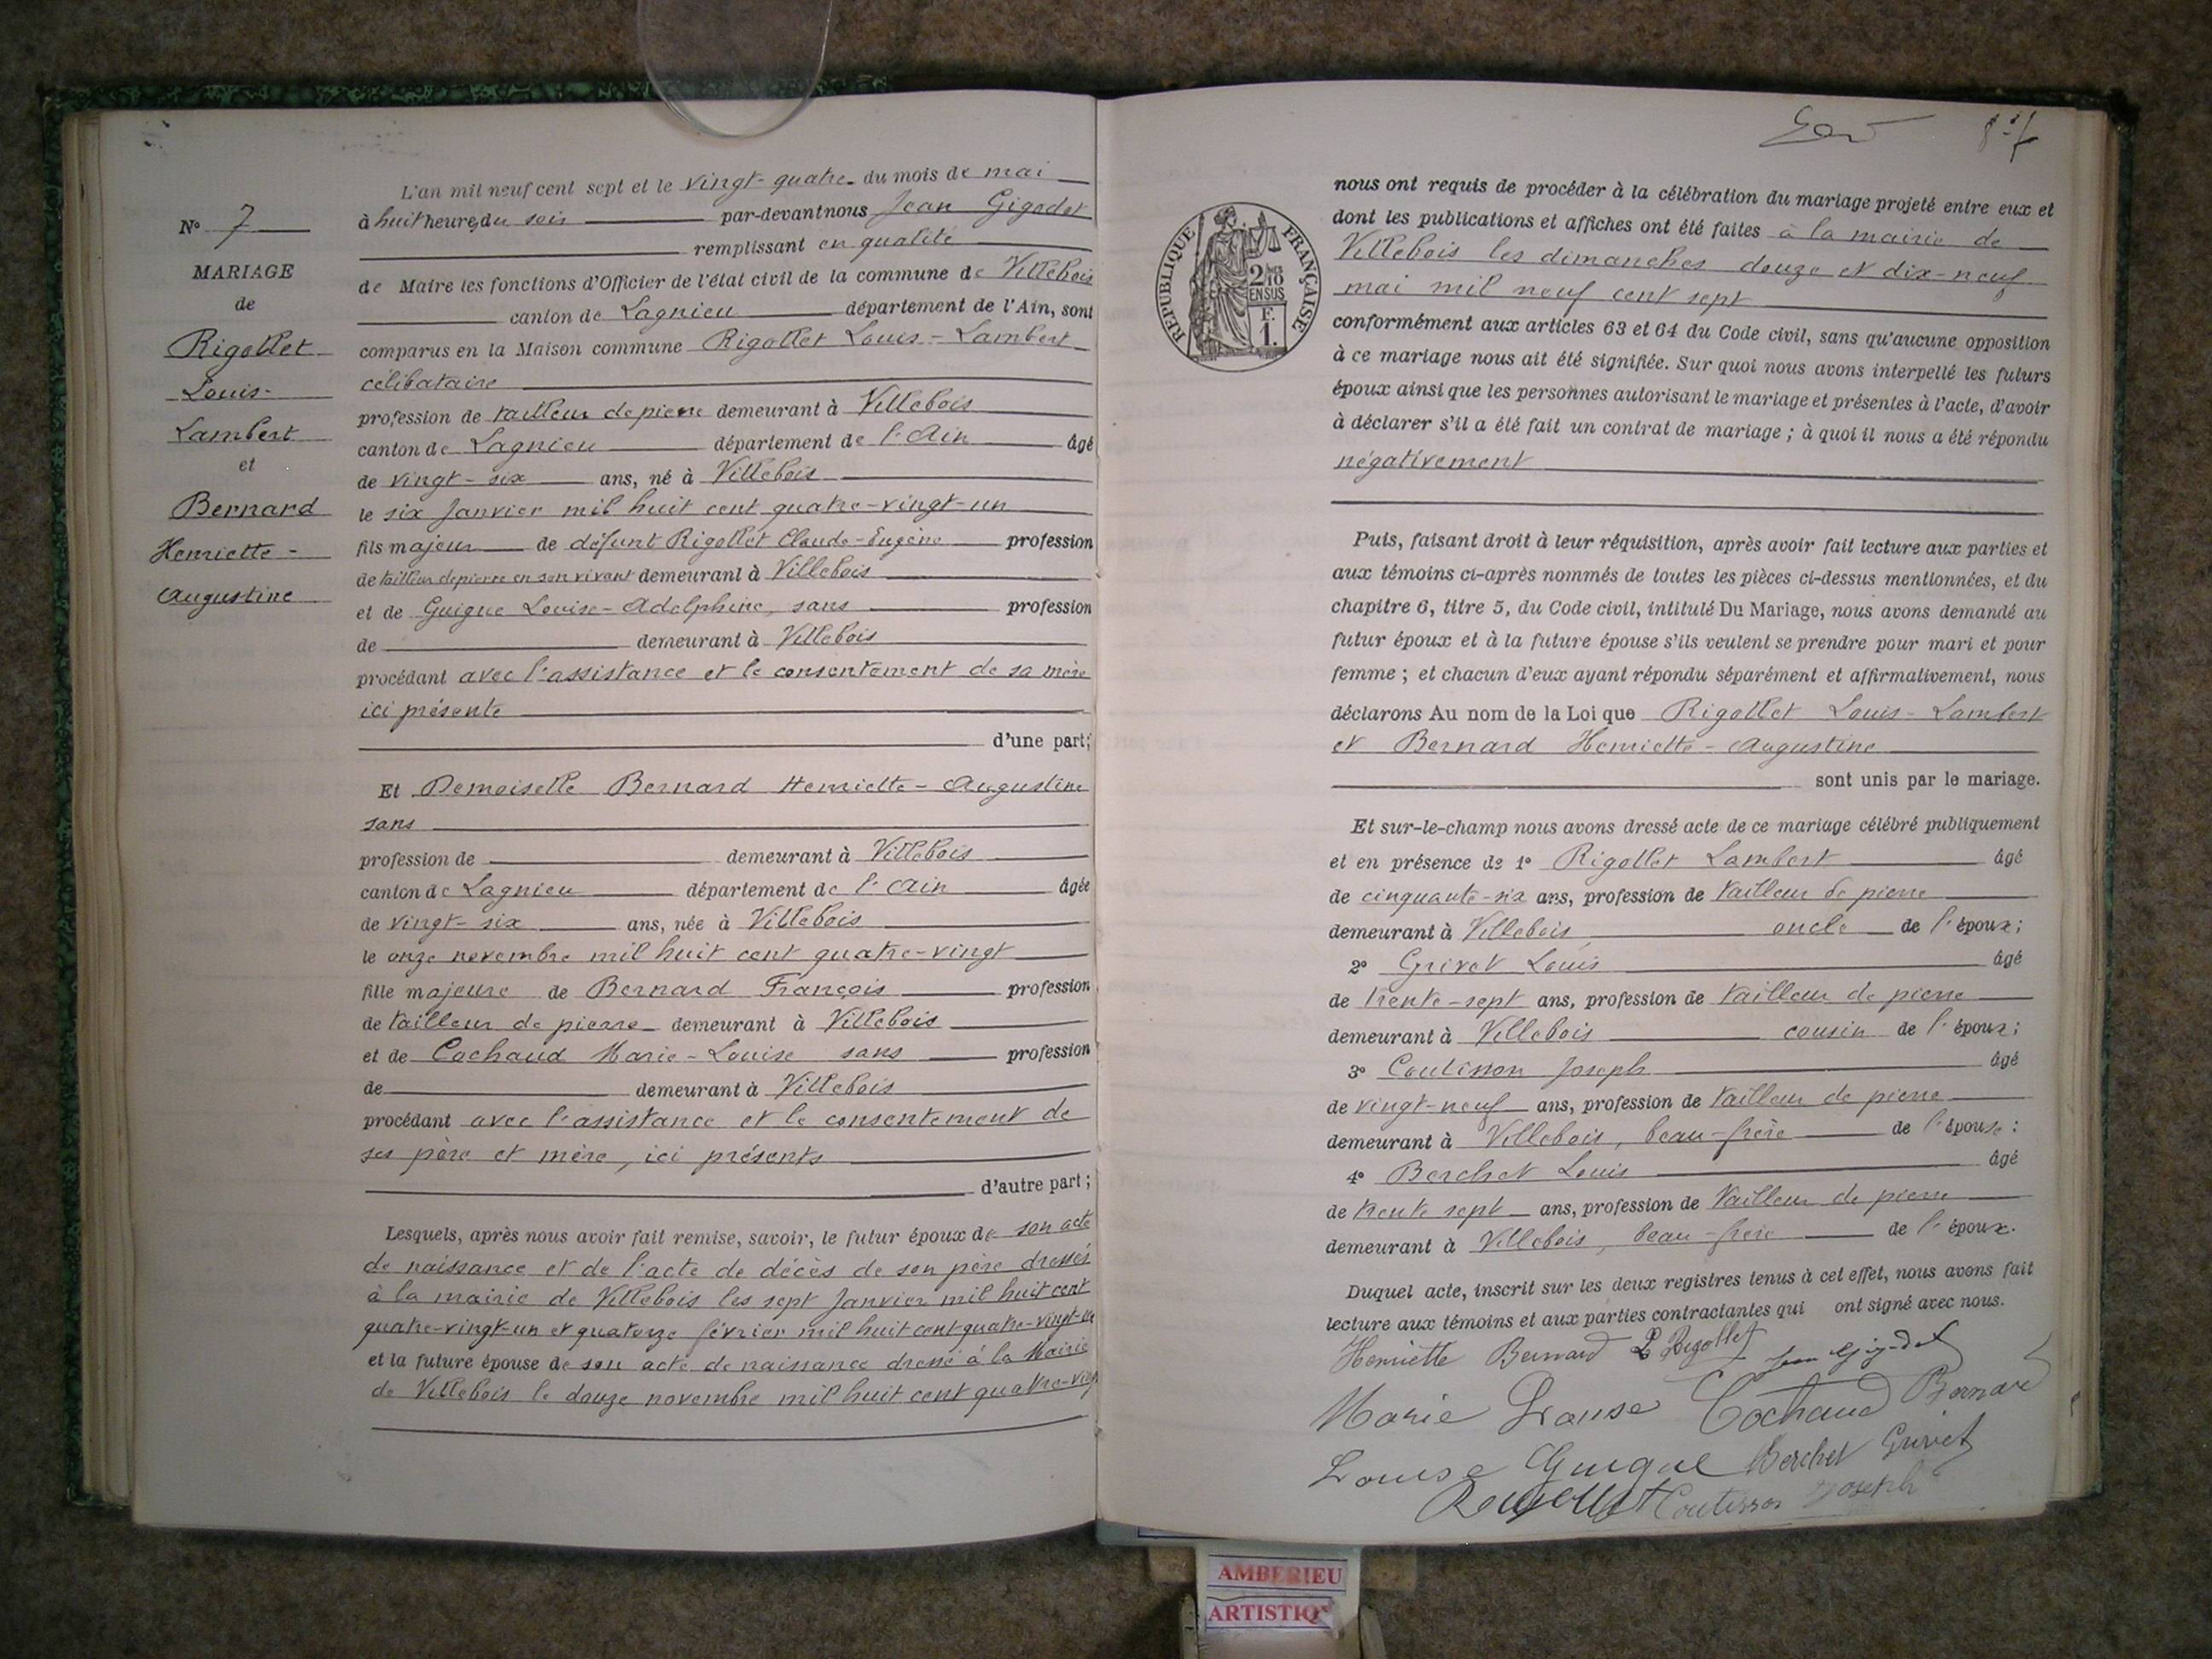 N° 7
MARIAGE
de
Rigollet
Louis-
Lambert
et
Bernard
Henriette-
Augustine
L'an mil neuf cent sept et le vingt-quatre du mois de mai
à huit heures du soir par-devant nous Jean Gigodet
remplissant en qualité
de Maire les fonctions d'Officier de l'état civil de la commune de Villebois
canton de Lagnieu département de l'Ain, sont
comparus en la Maison commune Rigollet Louis-Lambert
célibataire
profession de tailleur de pierre demeurant à Villebois
canton de Lagnieu département de l'Ain âgé
de vingt-six ans, né à Villebois
le six Janvier mil huit cent quatre-vingt-un
fils majeur de défunt Rigollet Claude-Eugène profession
de tailleur de pierre en son vivant demeurant à Villebois
et de Guigue Louise-Adelphine, sans profession
de demeurant à Villebois
procédant avec l'assistance et le consentement de sa mère
ici présente
d'une part;
Et Demoiselle Bernard Henriette-Augustine
sans
profession de demeurant à Villebois
canton de Lagnieu département de l'Ain âgée
de vingt-six ans, née à Villebois
le onze novembre mil huit cent quatre-vingt
fille majeure de Bernard François profession
de tailleur de pierre demeurant à Villebois
et de Cochaud Marie-Louise sans profession
de demeurant à Villebois
procédant avec l'assistance et le consentement de
ses père et mère, ici présents
d'autre part;
Lesquels, après nous avoir fait remise, savoir, le futur époux de son acte
de naissance et de l'acte de décès de son père dressés
à la mairie de Villebois les sept Janvier mil huit cent
quatre-vingt-un et quatorze février mil huit cent quatre-vingt-
et la future épouse de son acte de naissance dressé à la Mairie
de Villebois le douze novembre mil huit cent quatre-vingt
RÉPUBLIQUE FRANÇAISE
2/10
EN SUS
F.
1.
nous ont requis de procéder à la célébration du mariage projeté entre eux et
dont les publications et affiches ont été faites à la mairie de
Villebois les dimanches douze et dix-neuf
mai mil neuf cent sept
conformément aux articles 63 et 64 du Code civil, sans qu'aucune opposition
à ce mariage nous ait été signifiée. Sur quoi nous avons interpellé les futurs
époux ainsi que les personnes autorisant le mariage et présentes à l'acte, d'avoir
à déclarer s'il a été fait un contrat de mariage; à quoi il nous a été répondu
négativement
Puis, faisant droit à leur réquisition, après avoir fait lecture aux parties et
aux témoins ci-après nommés de toutes les pièces ci-dessus mentionnées, et du
chapitre 6, titre 5, du Code civil, intitulé Du Mariage, nous avons demandé au
futur époux et à la future épouse s'ils veulent se prendre pour mari et pour
femme; et chacun d'eux ayant répondu séparément et affirmativement, nous
déclarons Au nom de la Loi que Rigollet Louis-Lambert
et Bernard Henriette-Augustine
sont unis par le mariage.
Et sur-le-champ nous avons dressé acte de ce mariage célébré publiquement
et en présence de 1° Rigollet Lambert âgé
de cinquante-six ans, profession de tailleur de pierre
demeurant à Villebois, oncle de l'époux;
2° Grivet Louis âgé
de trente-sept ans, profession de tailleur de pierre
demeurant à Villebois cousin de l'époux;
3° Coutisson Joseph âgé
de vingt-neuf ans, profession de tailleur de pierre
demeurant à Villebois, beau-frère de l'épouse:
4° Berchet Louis âgé
de trente sept ans, profession de tailleur de pierre
demeurant à Villebois, beau-frère de l'époux.
Duquel acte, inscrit sur les deux registres tenus à cet effet, nous avons fait
lecture aux témoins et aux parties contractantes qui ont signé avec nous.
Henriette Bernard L Rigollet Jean Gigodet
Marie Louise Cochaud Bernard
Louise Guigue Berchet Grivet
Rigollet Coutisson Joseph
AMBERIEU
ARTISTIQ